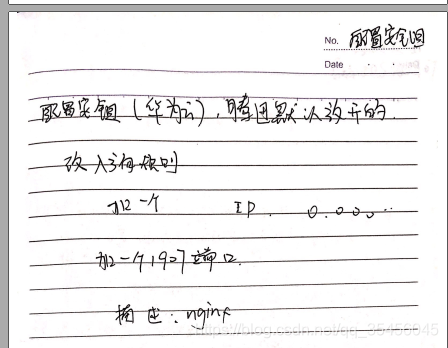 No. 配置安全组
Date
配置安全组（华为云），腾迅默认放开的.
改入方向规则
加一个 IP. 0.0.0.0..
加一个 90端口.
描述：nginx
https://blog.csdn.net/qq_35456045